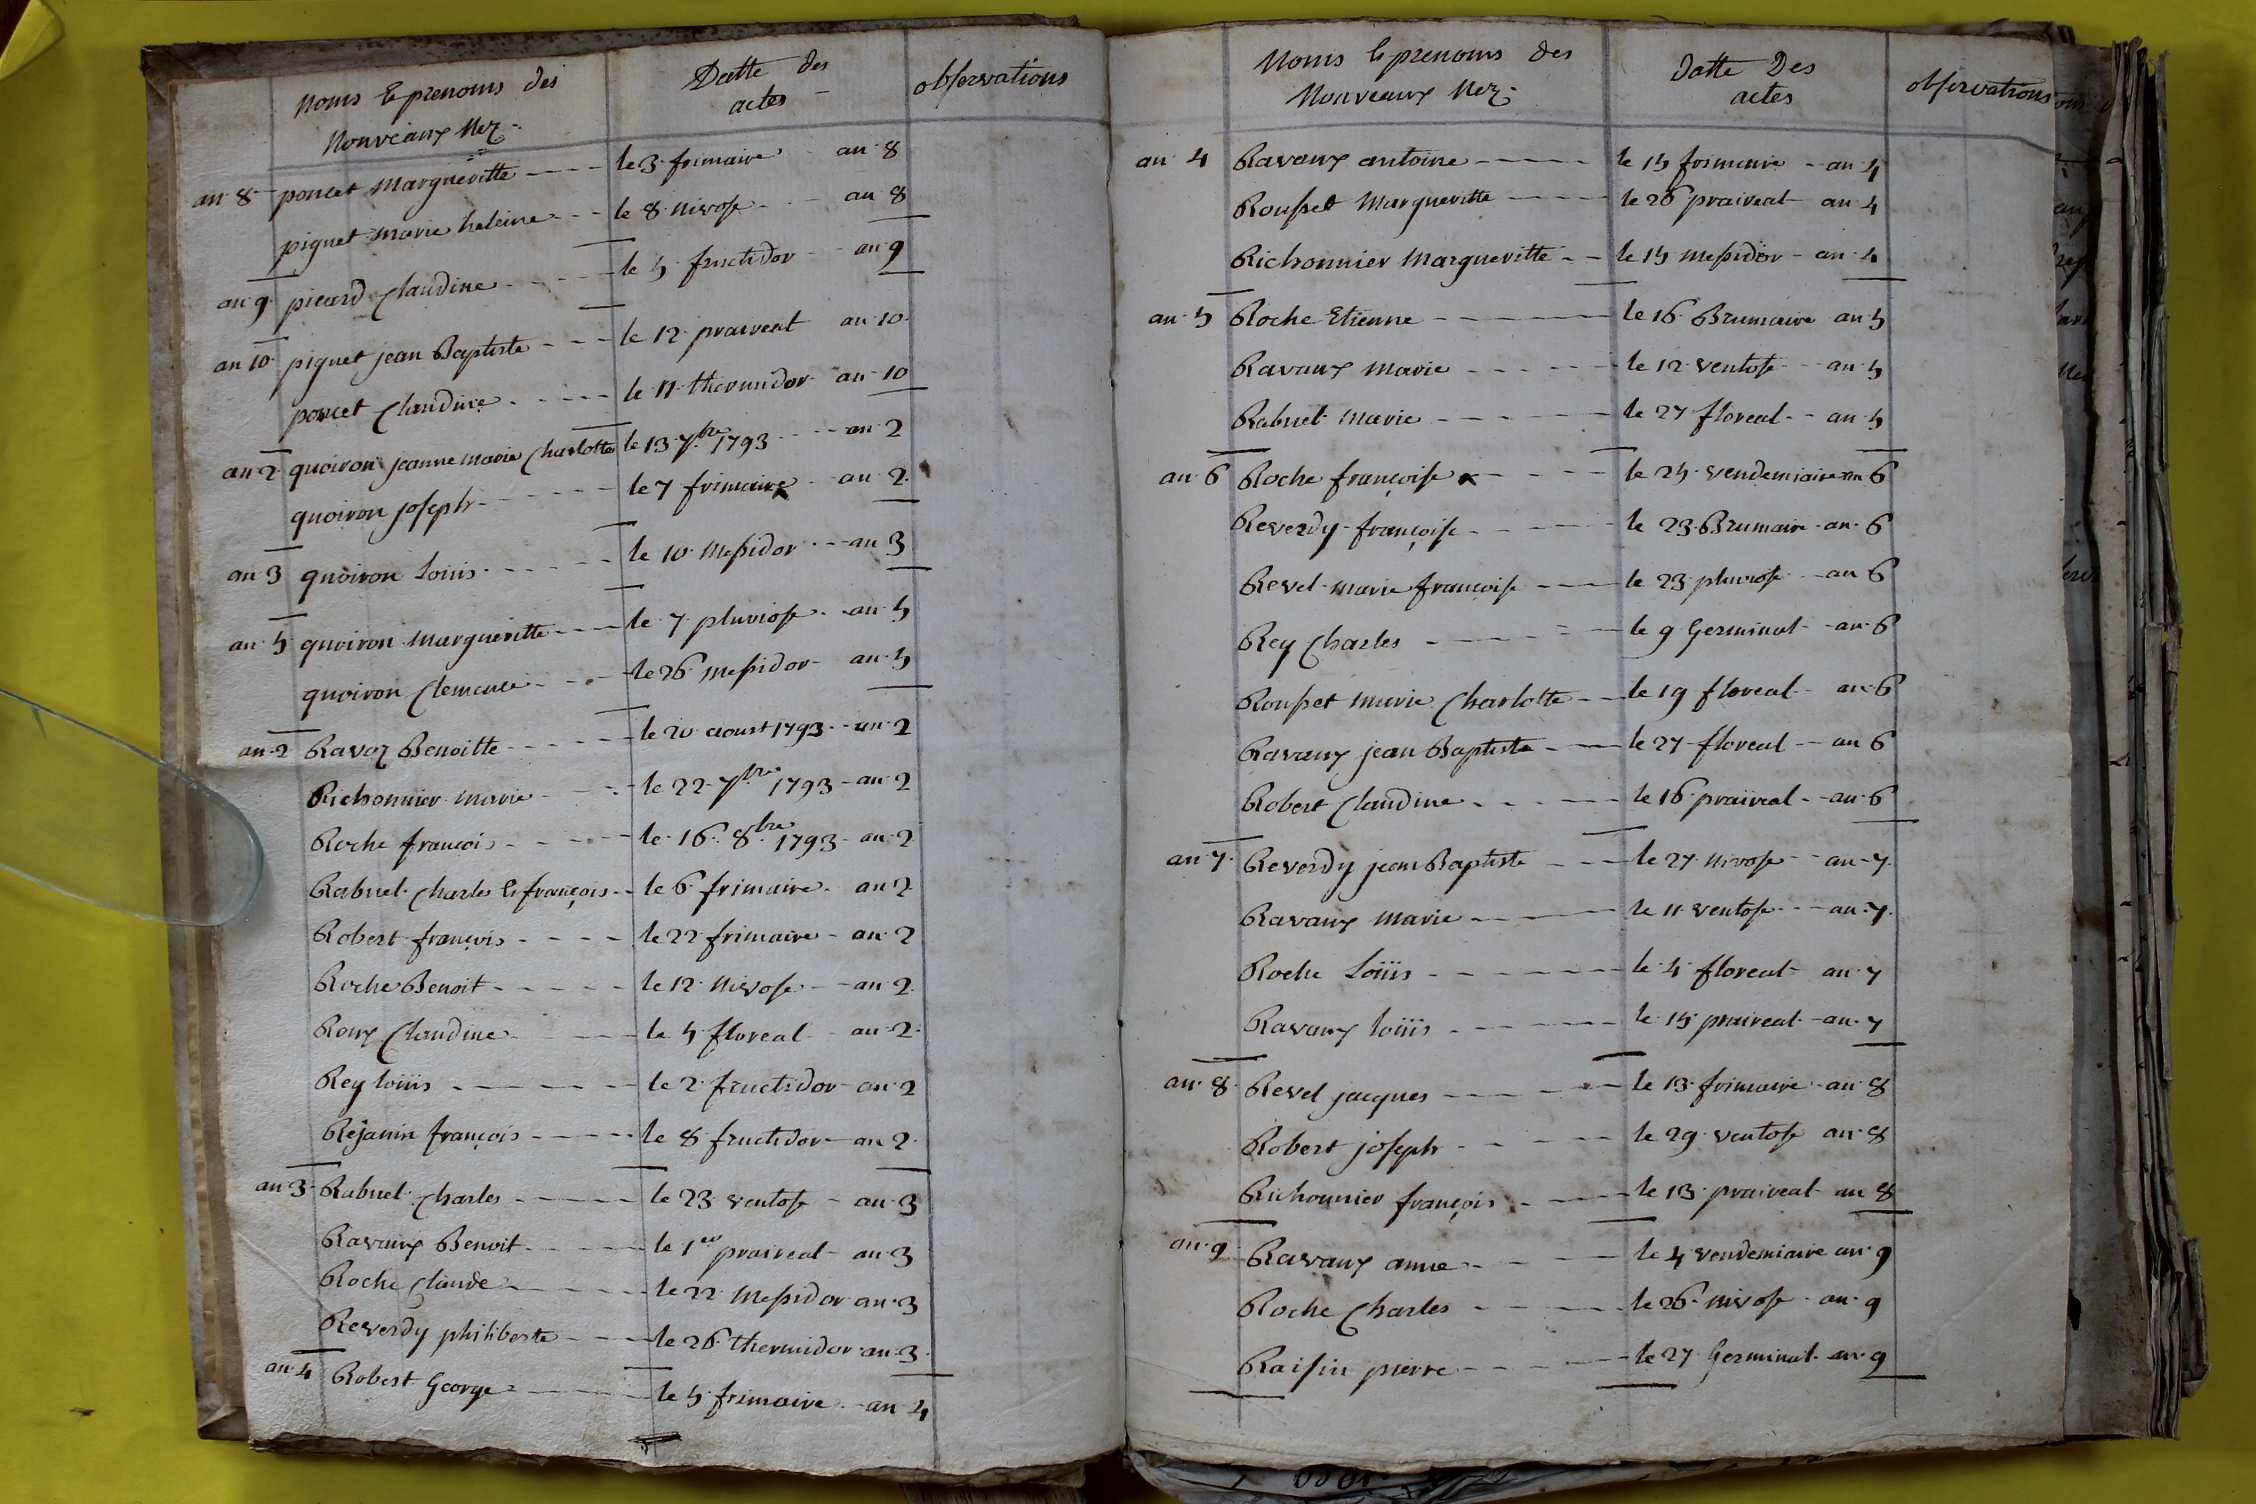 Noms & prenoms des Nouveaux Nez. Datte des actes observations
an 8 poncet Margueritte le 3 frimaire an 8
piquet marie heleine le 8 nivose an 8
an 9 picard Claudine le 5 fructidor an 9
an 10 piquet jean Baptiste le 12 praireal an 10
poncet Claudine le 11 thermidor an 10
an 2 quoiron jeanne marie Charlotte le 13 7bre 1793 an 2
quoiron joseph le 7 frimaire an 2
an 3 quoiron Loüis le 10 Messidor an 3
an 5 quoiron Margueritte le 7 pluviose an 5
quoiron Clemence le 26 messidor an 5
an 2 Ravoz Benoitte le 20 aoust 1793 an 2
Richonnier marie le 22 7bre 1793 an 2
Roche françois le 16 8bre 1793 an 2
Rabuel Charles & françois le 6 frimaire an 2
Robert françois le 22 frimaire an 2
Roche Benoit le 12 Nivose an 2
Roux Claudine le 5 floreal an 2
Rey loüis le 2 fructidor an 2
Rejanin françois le 8 fructidor an 2
an 3 Rabuel Charles le 23 ventose an 3
Ravaux Benoit le 1er praireal an 3
Roche Claude le 22 Messidor an 3
Reverdy philiberte le 26 thermidor an 3
an 4 Robert George le 5 frimaire an 4
Noms & prenoms des Nouveaux Nez. Datte Des actes observations
an 4 Ravaux antoine le 15 frimaire an 4
Rousset Margueritte le 26 praireal an 4
Richonnier Margueritte le 15 messidor an 4
an 5 Roche Etienne le 16 Brumaire an 5
Ravaux Marie le 12 ventose an 5
Rabuel Marie le 27 floreal an 5
an 6 Roche françoise le 25 vendemiaire an 6
Reverdy françoise le 23 Brumaire an 6
Revel marie françoise le 23 pluviose an 6
Rey Charles le 9 Germinal an 6
Rousset marie Charlotte le 19 floreal an 6
Ravaux jean Baptiste le 27 floreal an 6
Robert Claudine le 16 praireal an 6
an 7 Reverdy jean Baptiste le 27 nivose an 7
Ravaux Marie le 11 ventose an 7
Roche Loüis le 4 floreal an 7
Ravaux loüis le 15 praireal an 7
an 8 Revel jacques le 13 frimaire an 8
Robert joseph le 29 ventose an 8
Richonnier françois le 13 praireal an 8
an 9 Ravaux anne le 4 vendemiaire an 9
Roche Charles le 26 nivose an 9
Raisin pierre le 27 Germinal an 9